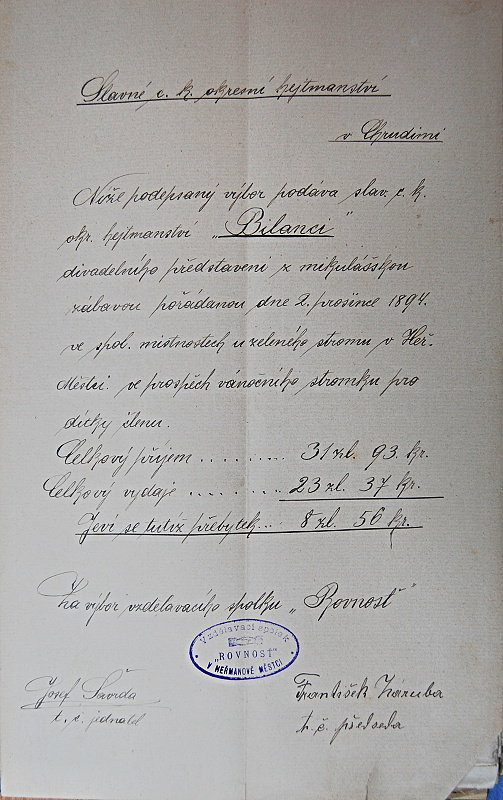 Slavné c. k. okresní hejtmanství
v Chrudimi
Níže podepsaný výbor podává slav. c. k.
okr. hejtmanství „Bilanci“
divadelního představení z mikulášskou
zábavou pořádanou dne 2. prosince 1894.
ve spol. místnostech u zeleného stromu v Heř-
Městci. ve prospěch vánočního stromku pro
dítky členů.
Celkový příjem ........ 31 zl. 93. kr.
Celkový vydaje ........ 23 zl. 37 kr.
Jeví se tudíz přebytek... 8 zl. 56 kr.
Za výbor vzdělavacího spolku „Rovnosť“
Vzdělávací spolek
„ROVNOSŤ“
V HEŘMANOVĚ MĚSTCI
Josef Šavrda
t. č. jednatel
František Záruba
t. č. předseda